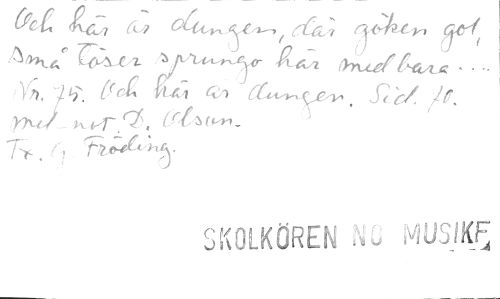 Och här är dungen, där göken gol,
små töser sprungo här med bara ....
Nr. 75. Och här är dungen. Sid. 70.
mel-not. D. Olson.
Tx. G. Fröding.
SKOLKÖREN NO MUSIKF